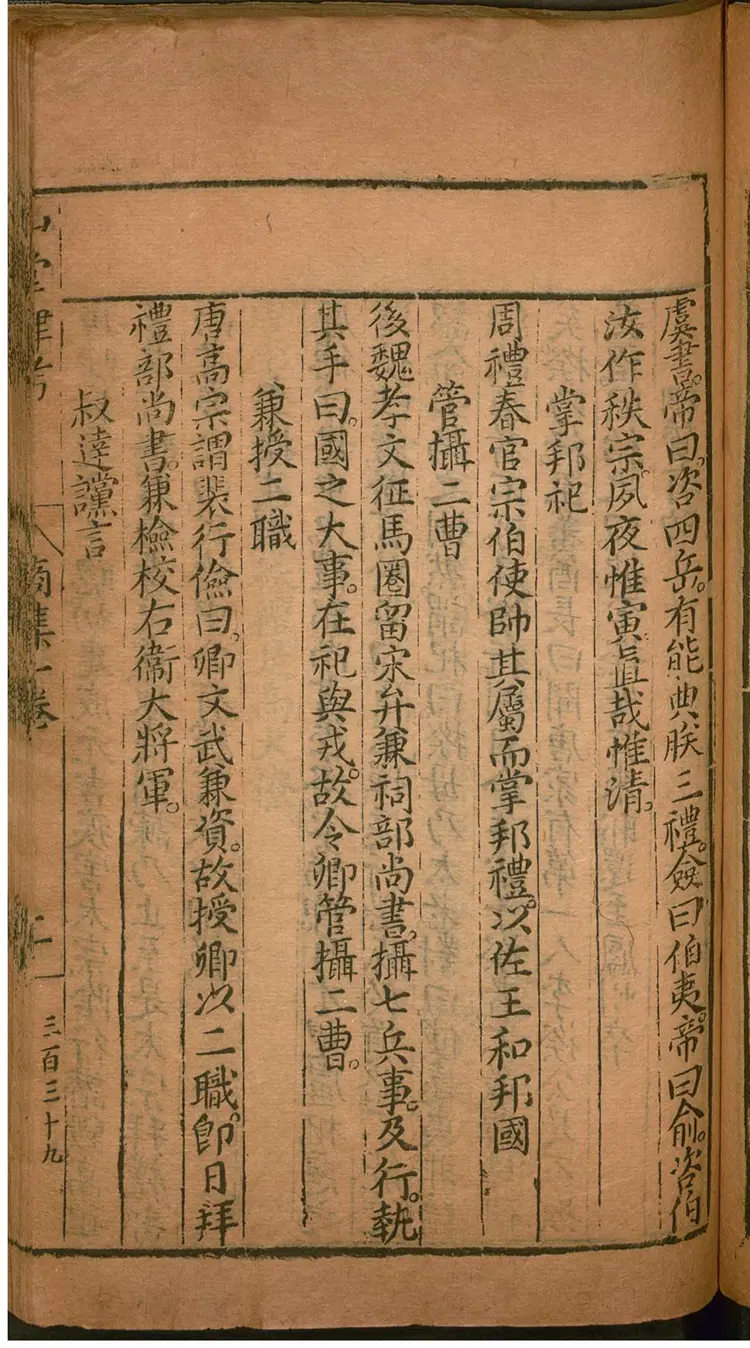 虞書。帝曰。咨四岳。有能典朕三禮。僉曰伯夷。帝曰俞。咨伯
汝作秩宗。夙夜惟寅直哉惟清。
掌邦祀
周禮春官宗伯使帥其屬而掌邦禮。以佐王和邦國
管攝二曹
後魏孝文征馬圈留宋弁兼祠部尚書。攝七兵事。及行。執
其手曰。國之大事。在祀與戎。故令卿管攝二曹。
兼授二職
唐高宗謂裴行儉曰。卿文武兼資。故授卿以二職。即日拜
禮部尚書。兼檢校右衞大將軍。
叔達讜言
商集一卷
三百三十九